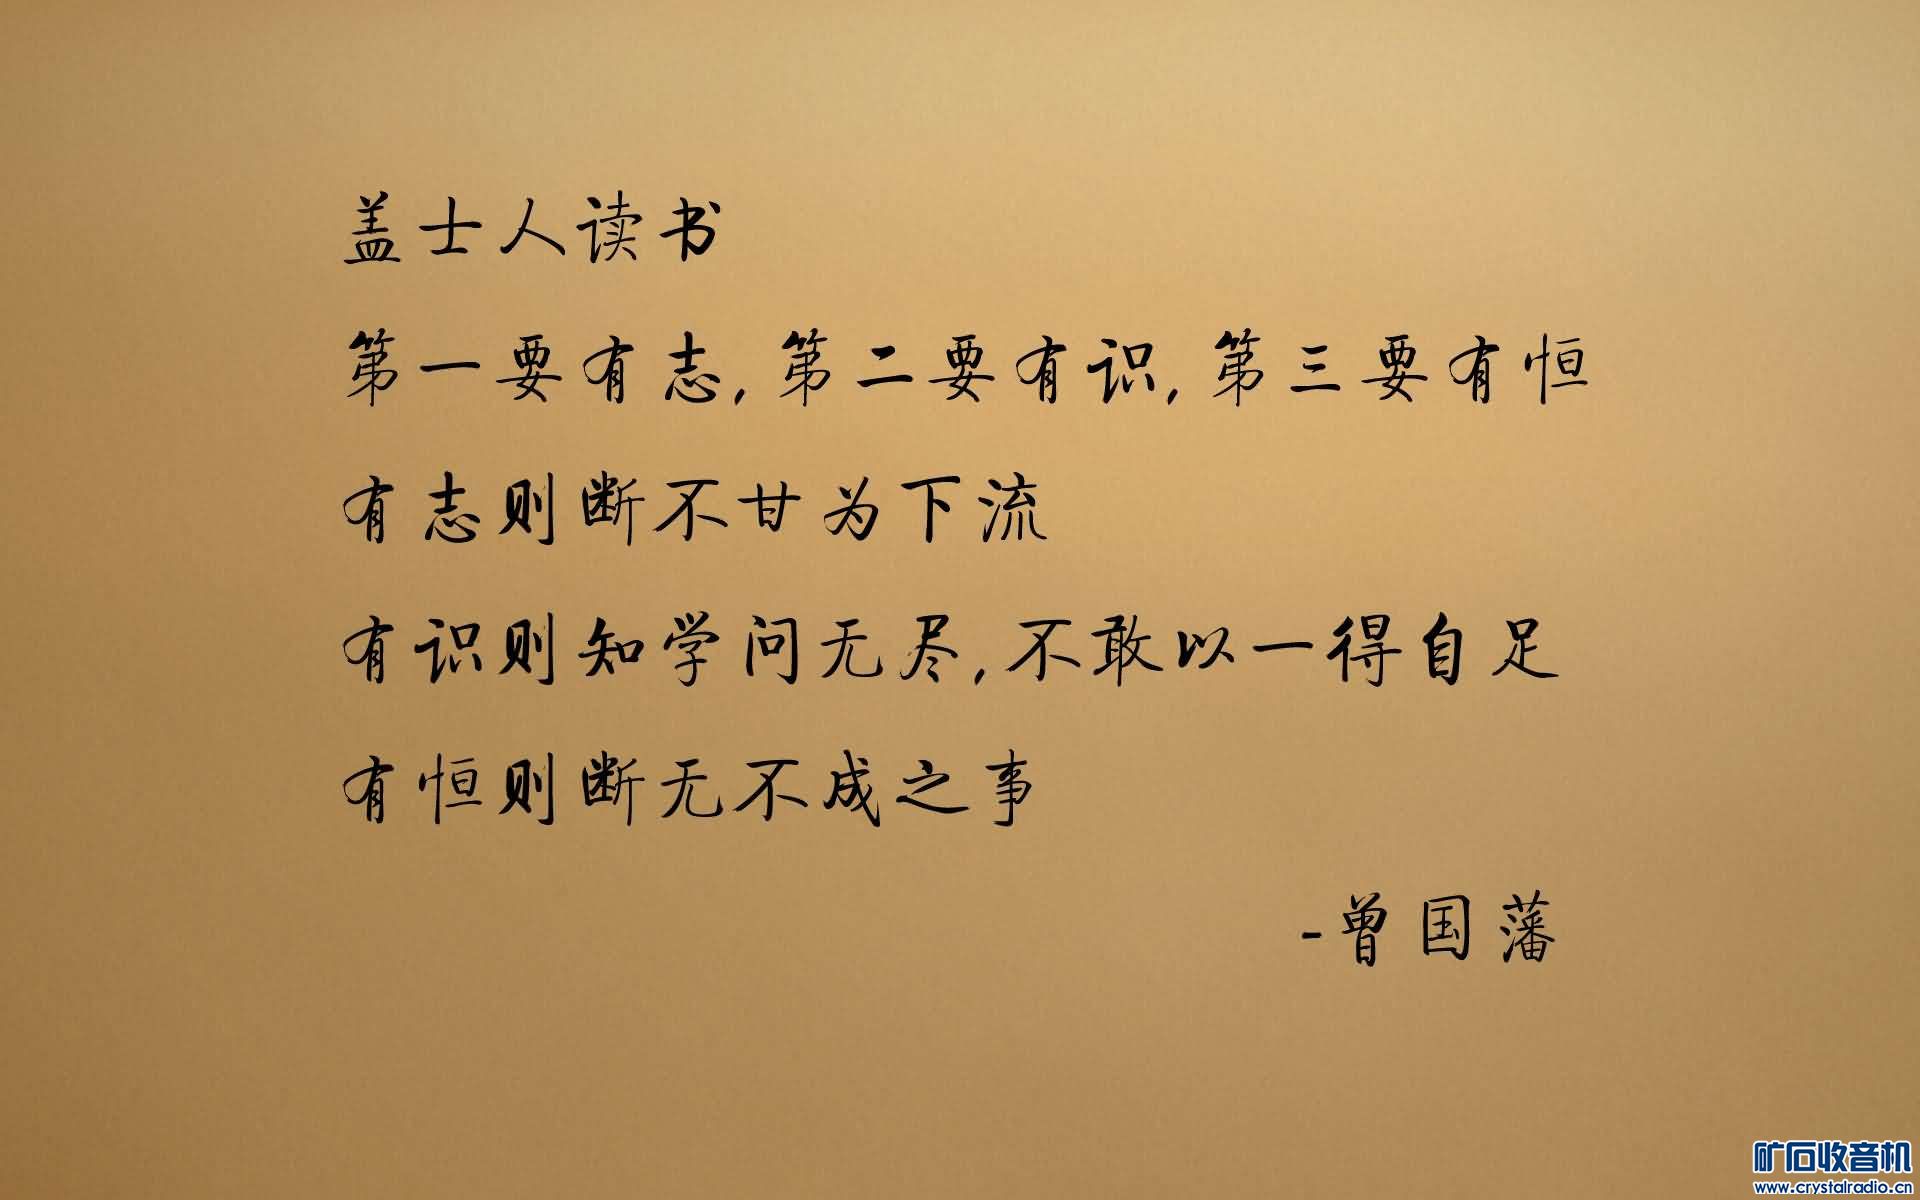 盖士人读书
第一要有志,第二要有识,第三要有恒
有志则断不甘为下流
有识则知学问无尽,不敢以一得自足
有恒则断无不成之事
-曾国藩
矿石收音机
www.crystalradio.cn